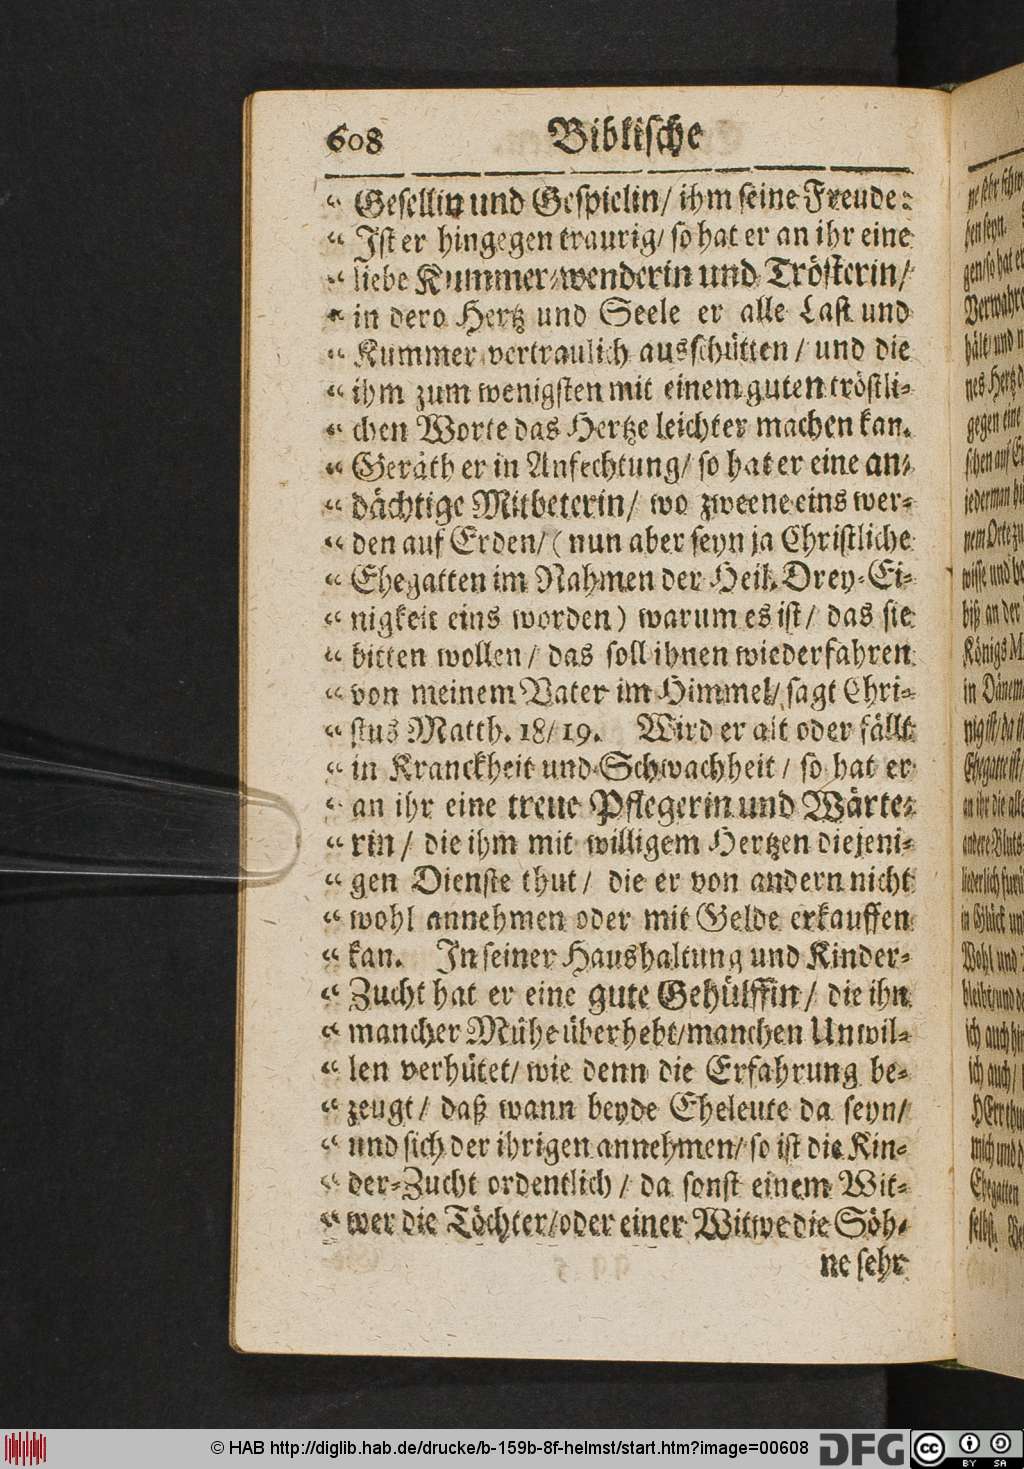 608 Biblische
“ Gesellin und Gespielin/ ihm seine Freude:
“ Ist er hingegen traurig/ so hat er an ihr eine
“ liebe Kummer-wenderin und Trösterin/
“ in dero Hertz und Seele er alle Last und
“ Kummer vertraulich ausschütten/ und die
“ ihm zum wenigsten mit einem guten tröstli-
“ chen Worte das Hertze leichter machen kan.
“ Geräth er in Anfechtung/ so hat er eine an-
“ dächtige Mitbeterin/ wo zweene eins wer-
“ den auf Erden/ (nun aber seyn ja Christliche
“ Ehegatten im Nahmen der Heil. Drey-Ei-
“ nigkeit eins worden) warum es ist/ das sie
“ bitten wollen/ das soll ihnen wiederfahren
“ von meinem Vater im Himmel/ sagt Chri-
“ stus Matth. 18/19. Wird er alt oder fällt
“ in Kranckheit und Schwachheit/ so hat er
“ an ihr eine treue Pflegerin und Wärte-
“ rin/ die ihm mit willigem Hertzen diejeni-
“ gen Dienste thut/ die er von andern nicht
“ wohl annehmen oder mit Gelde erkauffen
“ kan. In seiner Haushaltung und Kinder-
“ Zucht hat er eine gute Gehülffin/ die ihn
“ mancher Mühe überhebt/ manchen Unwil-
“ len verhütet/ wie denn die Erfahrung be-
“ zeugt/ daß wann beyde Eheleute da seyn/
“ und sich der ihrigen annehmen/ so ist die Kin-
“ der-Zucht ordentlich/ da sonst einem Wit-
“ wer die Töchter/ oder einer Witwe die Söh-
ne sehr
© HAB http://diglib.hab.de/drucke/b-159b-8f-helmst/start.htm?image=00608
DFG
cc BY SA